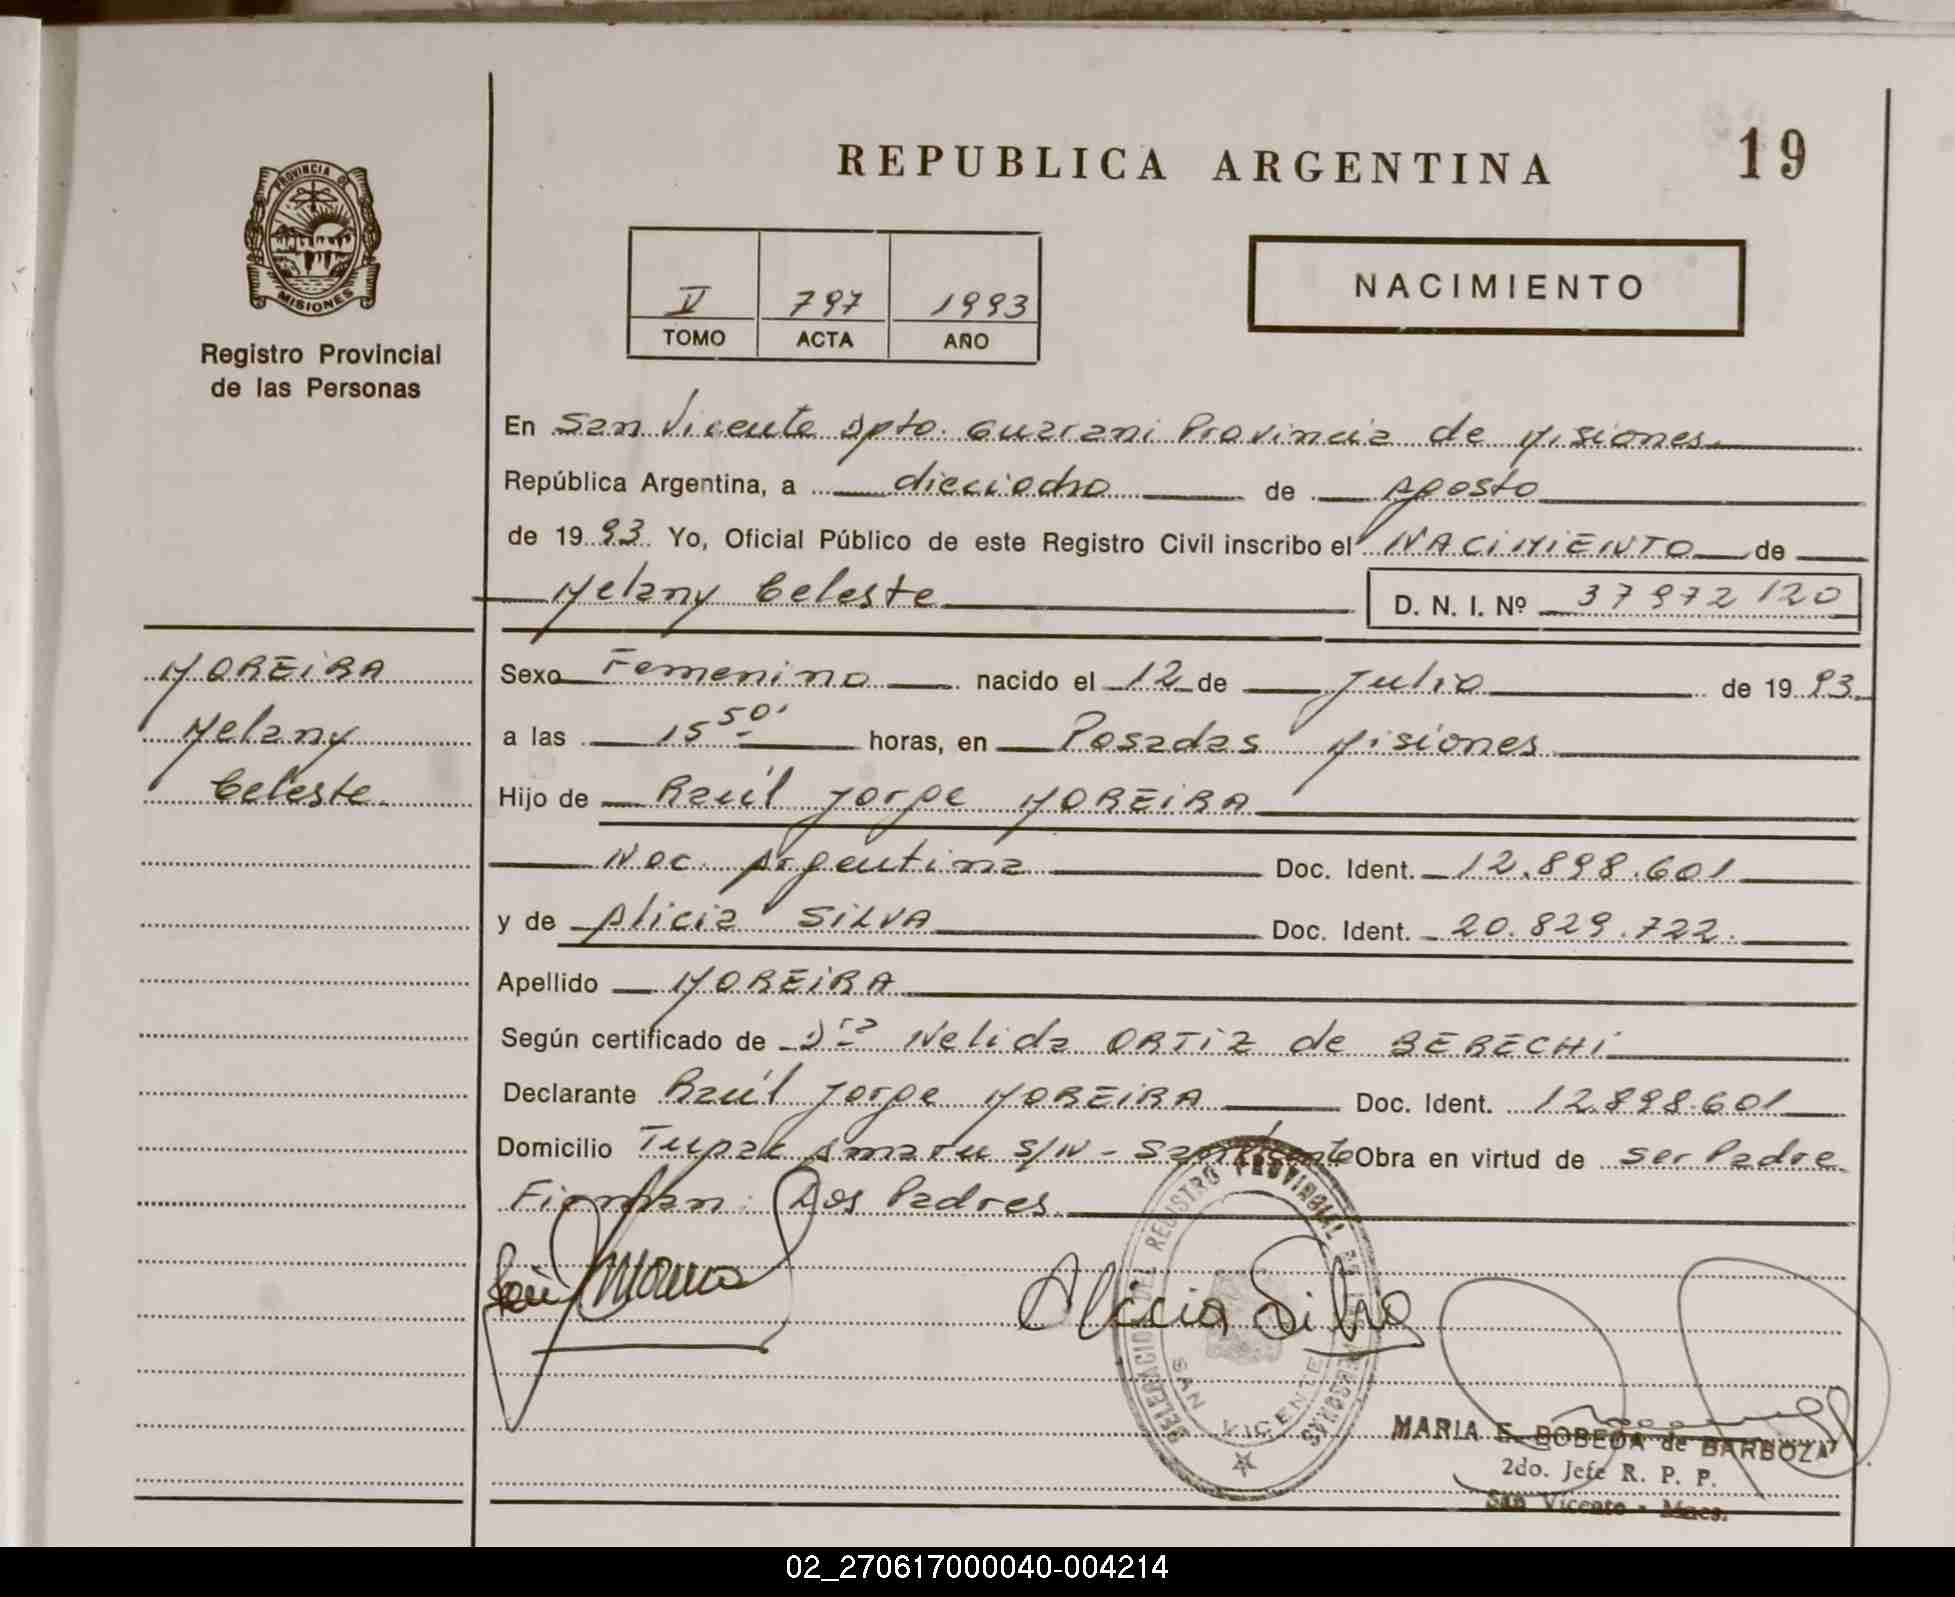 REPUBLICA ARGENTINA
19
PROVINCIA DE
MISIONES
Registro Provincial
de las Personas
V 797 1993
TOMO ACTA AÑO
NACIMIENTO
En San Vicente Dpto. Guarani Provincia de Misiones
República Argentina, a dieciocho de Agosto
de 1993 Yo, Oficial Público de este Registro Civil inscribo el NACIMIENTO de
Melany Celeste D. N. I. Nº 37972120
MOREIRA
Melany
Celeste
Sexo Femenino nacido el 12 de Julio de 1993
a las 15 50' horas, en Posadas Misiones
Hijo de Raúl Jorge MOREIRA
Nac. Argentina Doc. Ident. 12.898.601
y de Alicia SILVA Doc. Ident. 20.829.722.
Apellido MOREIRA
Según certificado de Dra Nelida ORTIZ de BERECHI
Declarante Raúl Jorge MOREIRA Doc. Ident. 12.898.601
Domicilio Tupac Amaru S/N - San Vicente Obra en virtud de ser Padre
Firman: Los Padres
Alicia Silva
DELEGACION DEL REGISTRO PROVINCIAL DE LAS PERSONAS
SAN VICENTE
MARIA E. BOBEDA de BARBOZA
2do. Jefe R. P. P.
San Vicente - Mnes.
02_270617000040-004214